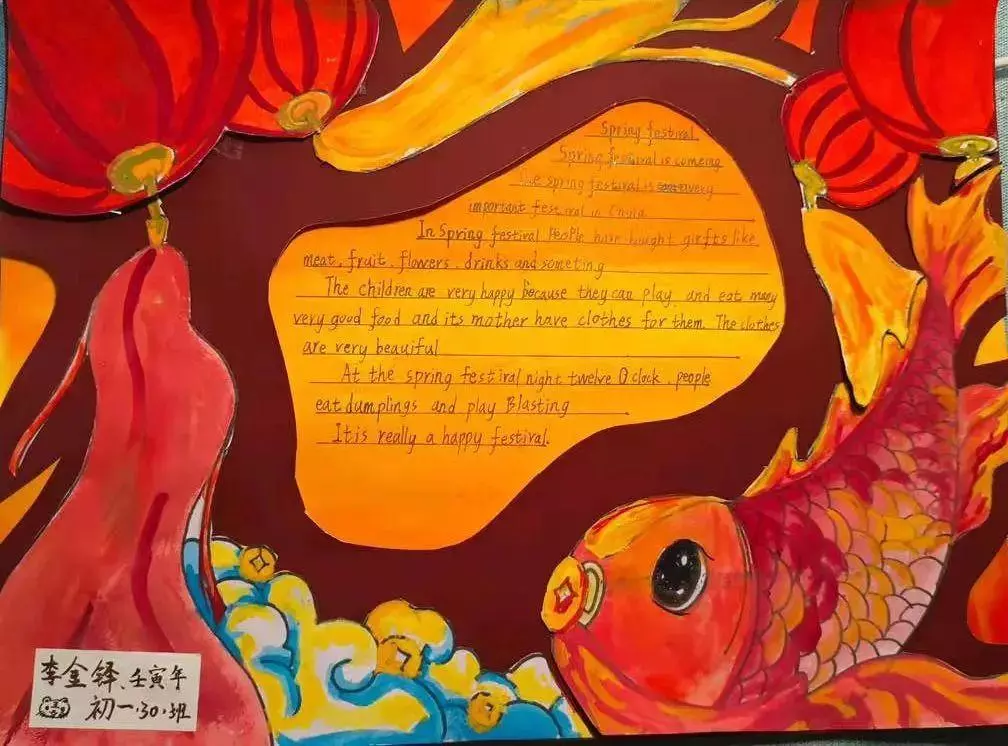 Spring festival
Spring festival is comeing
The spring festival is very
important festival in China
In Spring festival People have bought girfts like
meat, fruit, flowers, drinks and someting
The children are very happy because they can play and eat many
very good food and its mother have clothes for them. The clothes
are very beauiful
At the spring festival night twelve O clock, people
eat dumplings and play Blasting
It is really a happy festival.
李金铎、壬寅年
初一·30·班